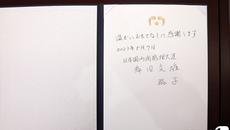 温かいおもてなしに感謝します
2023年5月7日
日本国内閣総理大臣
岸田文雄
裕子